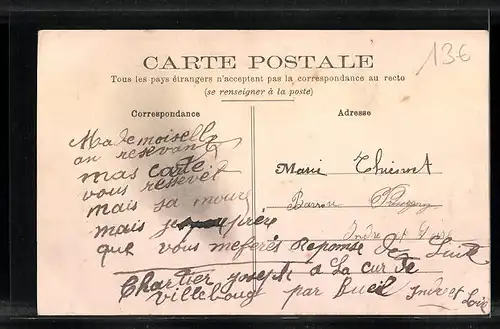 13€
CARTE POSTALE
Tous les pays étrangers n'acceptent pas la correspondance au recto
(se renseigner à la poste)
Correspondance
Mademoiselle
an resevant
mas carte
vous
mais sa
mais
que vous meferés reponse de Suite
Chartier joseph a La cur de
Villebourg par Bueil Indre et Loire
Adresse
Marie
Barrou
Indre et Loire